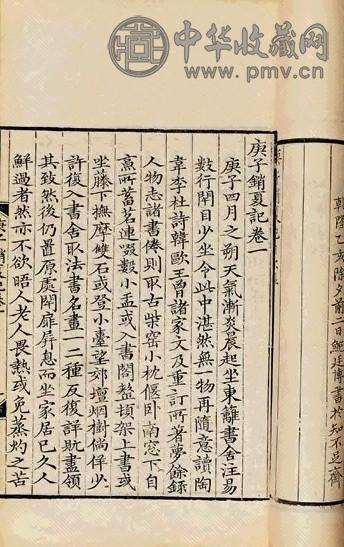 中华收藏网
www.pmv.cn
乾隆乙亥除夕前二日鮑廷博書於知不足齋
庚子銷夏記卷一
庚子四月之朔天氣漸炎晨起坐東籬書舍注易
數行閉目少坐令此中湛然無物再隨意讀陶
韋李杜詩韓歐王曾諸家文及重訂所著夢餘錄
人物志諸書倦則取古柴窑小枕偃卧南窓下自
烹所蓄茗連啜數小盂或入書閣整頓架上書或
坐藤下撫摩雙石或登小臺望郊壇烟樹徜徉少
許復入書舍取法書名畫一二種反復詳玩盡領
其致然後仍置原處閉扉屏息而坐家居已久人
鮮過者然亦不欲晤人老人畏熱或免蒸灼之苦